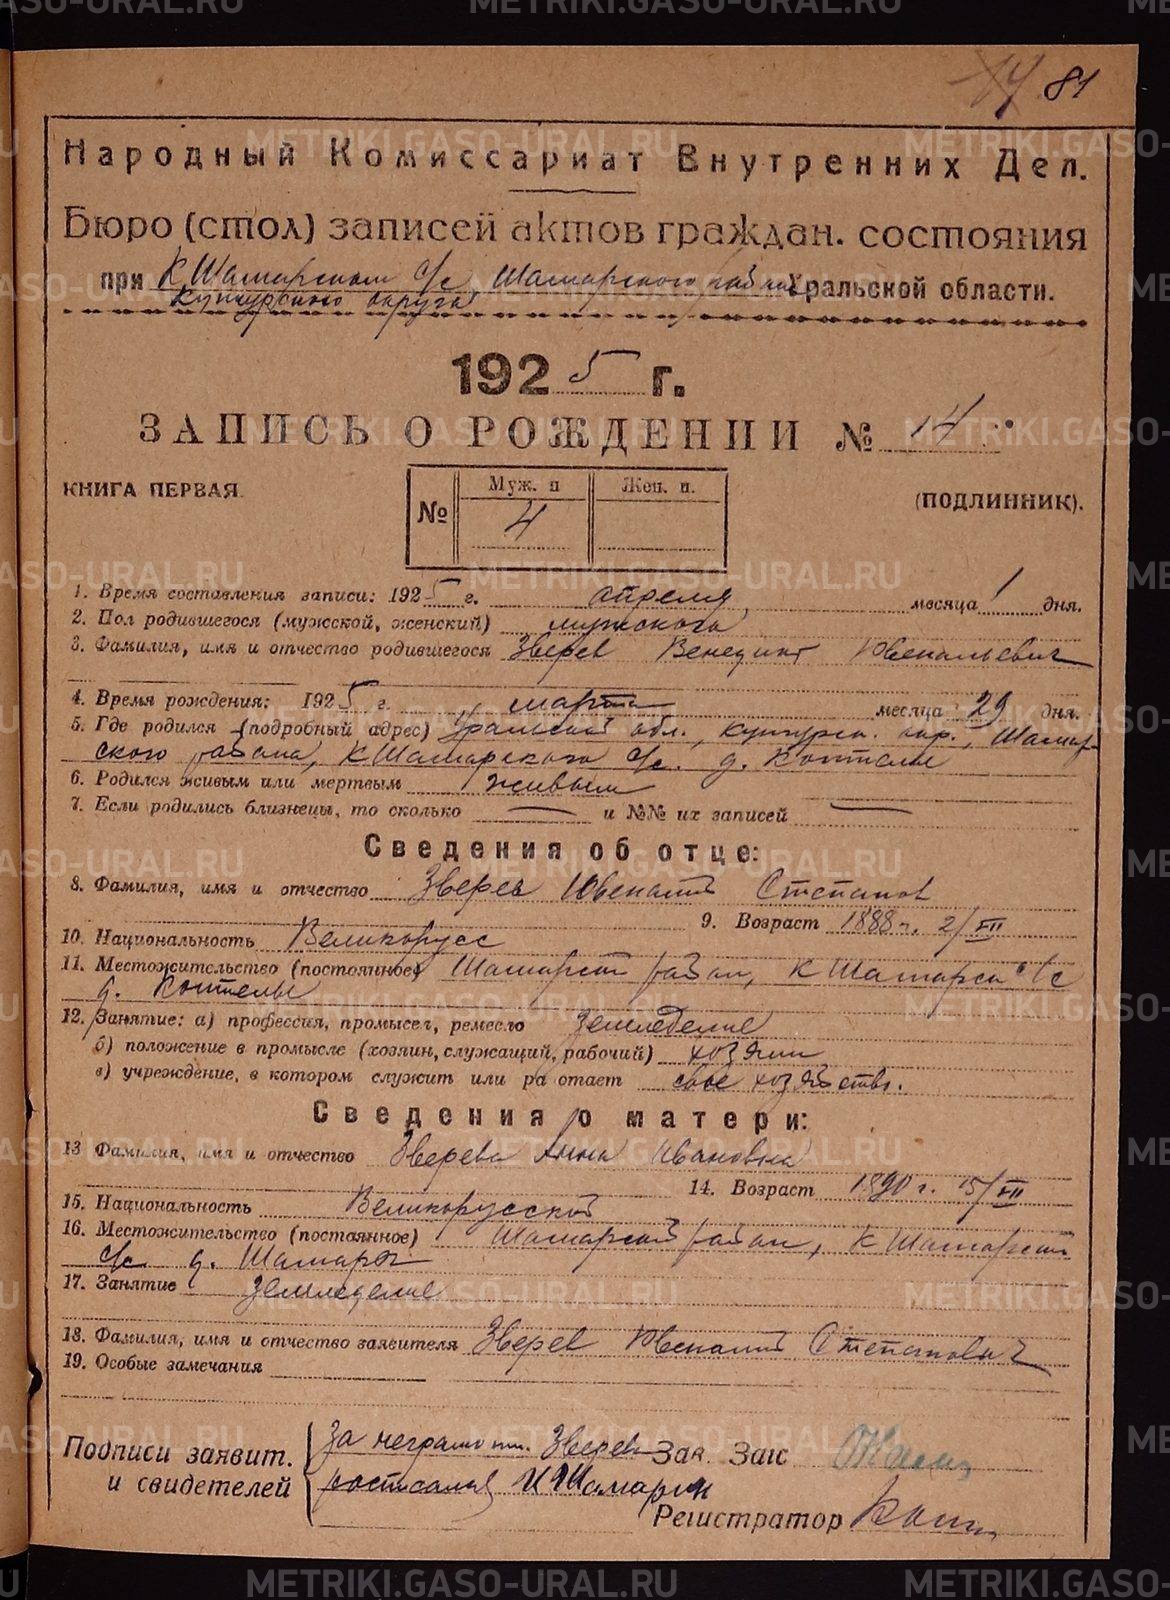 14 81
Народный Комиссариат Внутренних Дел.
Бюро (стол) записей актов граждан. состояния
при К Шамарском с/с, Шамарского района Уральской области.
Кунгурского округа
1925 г.
ЗАПИСЬ О РОЖДЕНИИ № 14
КНИГА ПЕРВАЯ.
(ПОДЛИННИК).
№ Муж. п Жен. п.
4
1. Время составления записи: 1925 г. апреля месяца 1 дня.
2. Пол родившегося (мужской, женский) мужского
3. Фамилия, имя и отчество родившегося Зверев Венедикт Ювенальевич
4. Время рождения: 1925 г. марта месяца 29 дня.
5. Где родился (подробный адрес) Уральской обл., Кунгурск. окр., Шамар-
ского района, К Шамарского с/с. д. Коптелы
6. Родился живым или мертвым живым
7. Если родились близнецы, то сколько — и №№ их записей —
Сведения об отце:
8. Фамилия, имя и отчество Зверев Ювеналий Степанов
9. Возраст 1888 г. 2/VII
10. Национальность Великорусс
11. Местожительство (постоянное) Шамарский район, К Шамарск с/с
д. Коптелы
12. Занятие: а) профессия, промысел, ремесло земледелие
б) положение в промысле (хозяин, служащий, рабочий) хозяин
в) учреждение, в котором служит или ра отает свое хозяйство.
Сведения о матери:
13 Фамилия, имя и отчество Зверева Анна Ивановна
14. Возраст 1890 г. 15/VII
15. Национальность Великорусской
16. Местожительство (постоянное) Шамарский район, К Шамарский
с/с д. Шамары
17. Занятие земледелие
18. Фамилия, имя и отчество заявителя Зверев Ювеналий Степанович
19. Особые замечания
Подписи заявит.
и свидетелей
За неграмотн. Зверева
росписался И Шамарин
Зав. Загс
Регистратор
METRIKI.GASO-URAL.RU